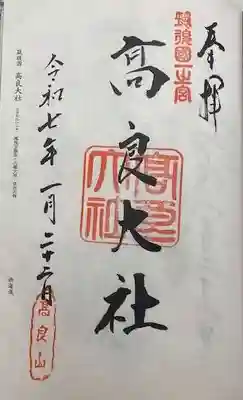 奉拝
筑後國一之宮
高良大社
髙良大社
令和七年一月二十二日
高良山
筑後国 高良大社